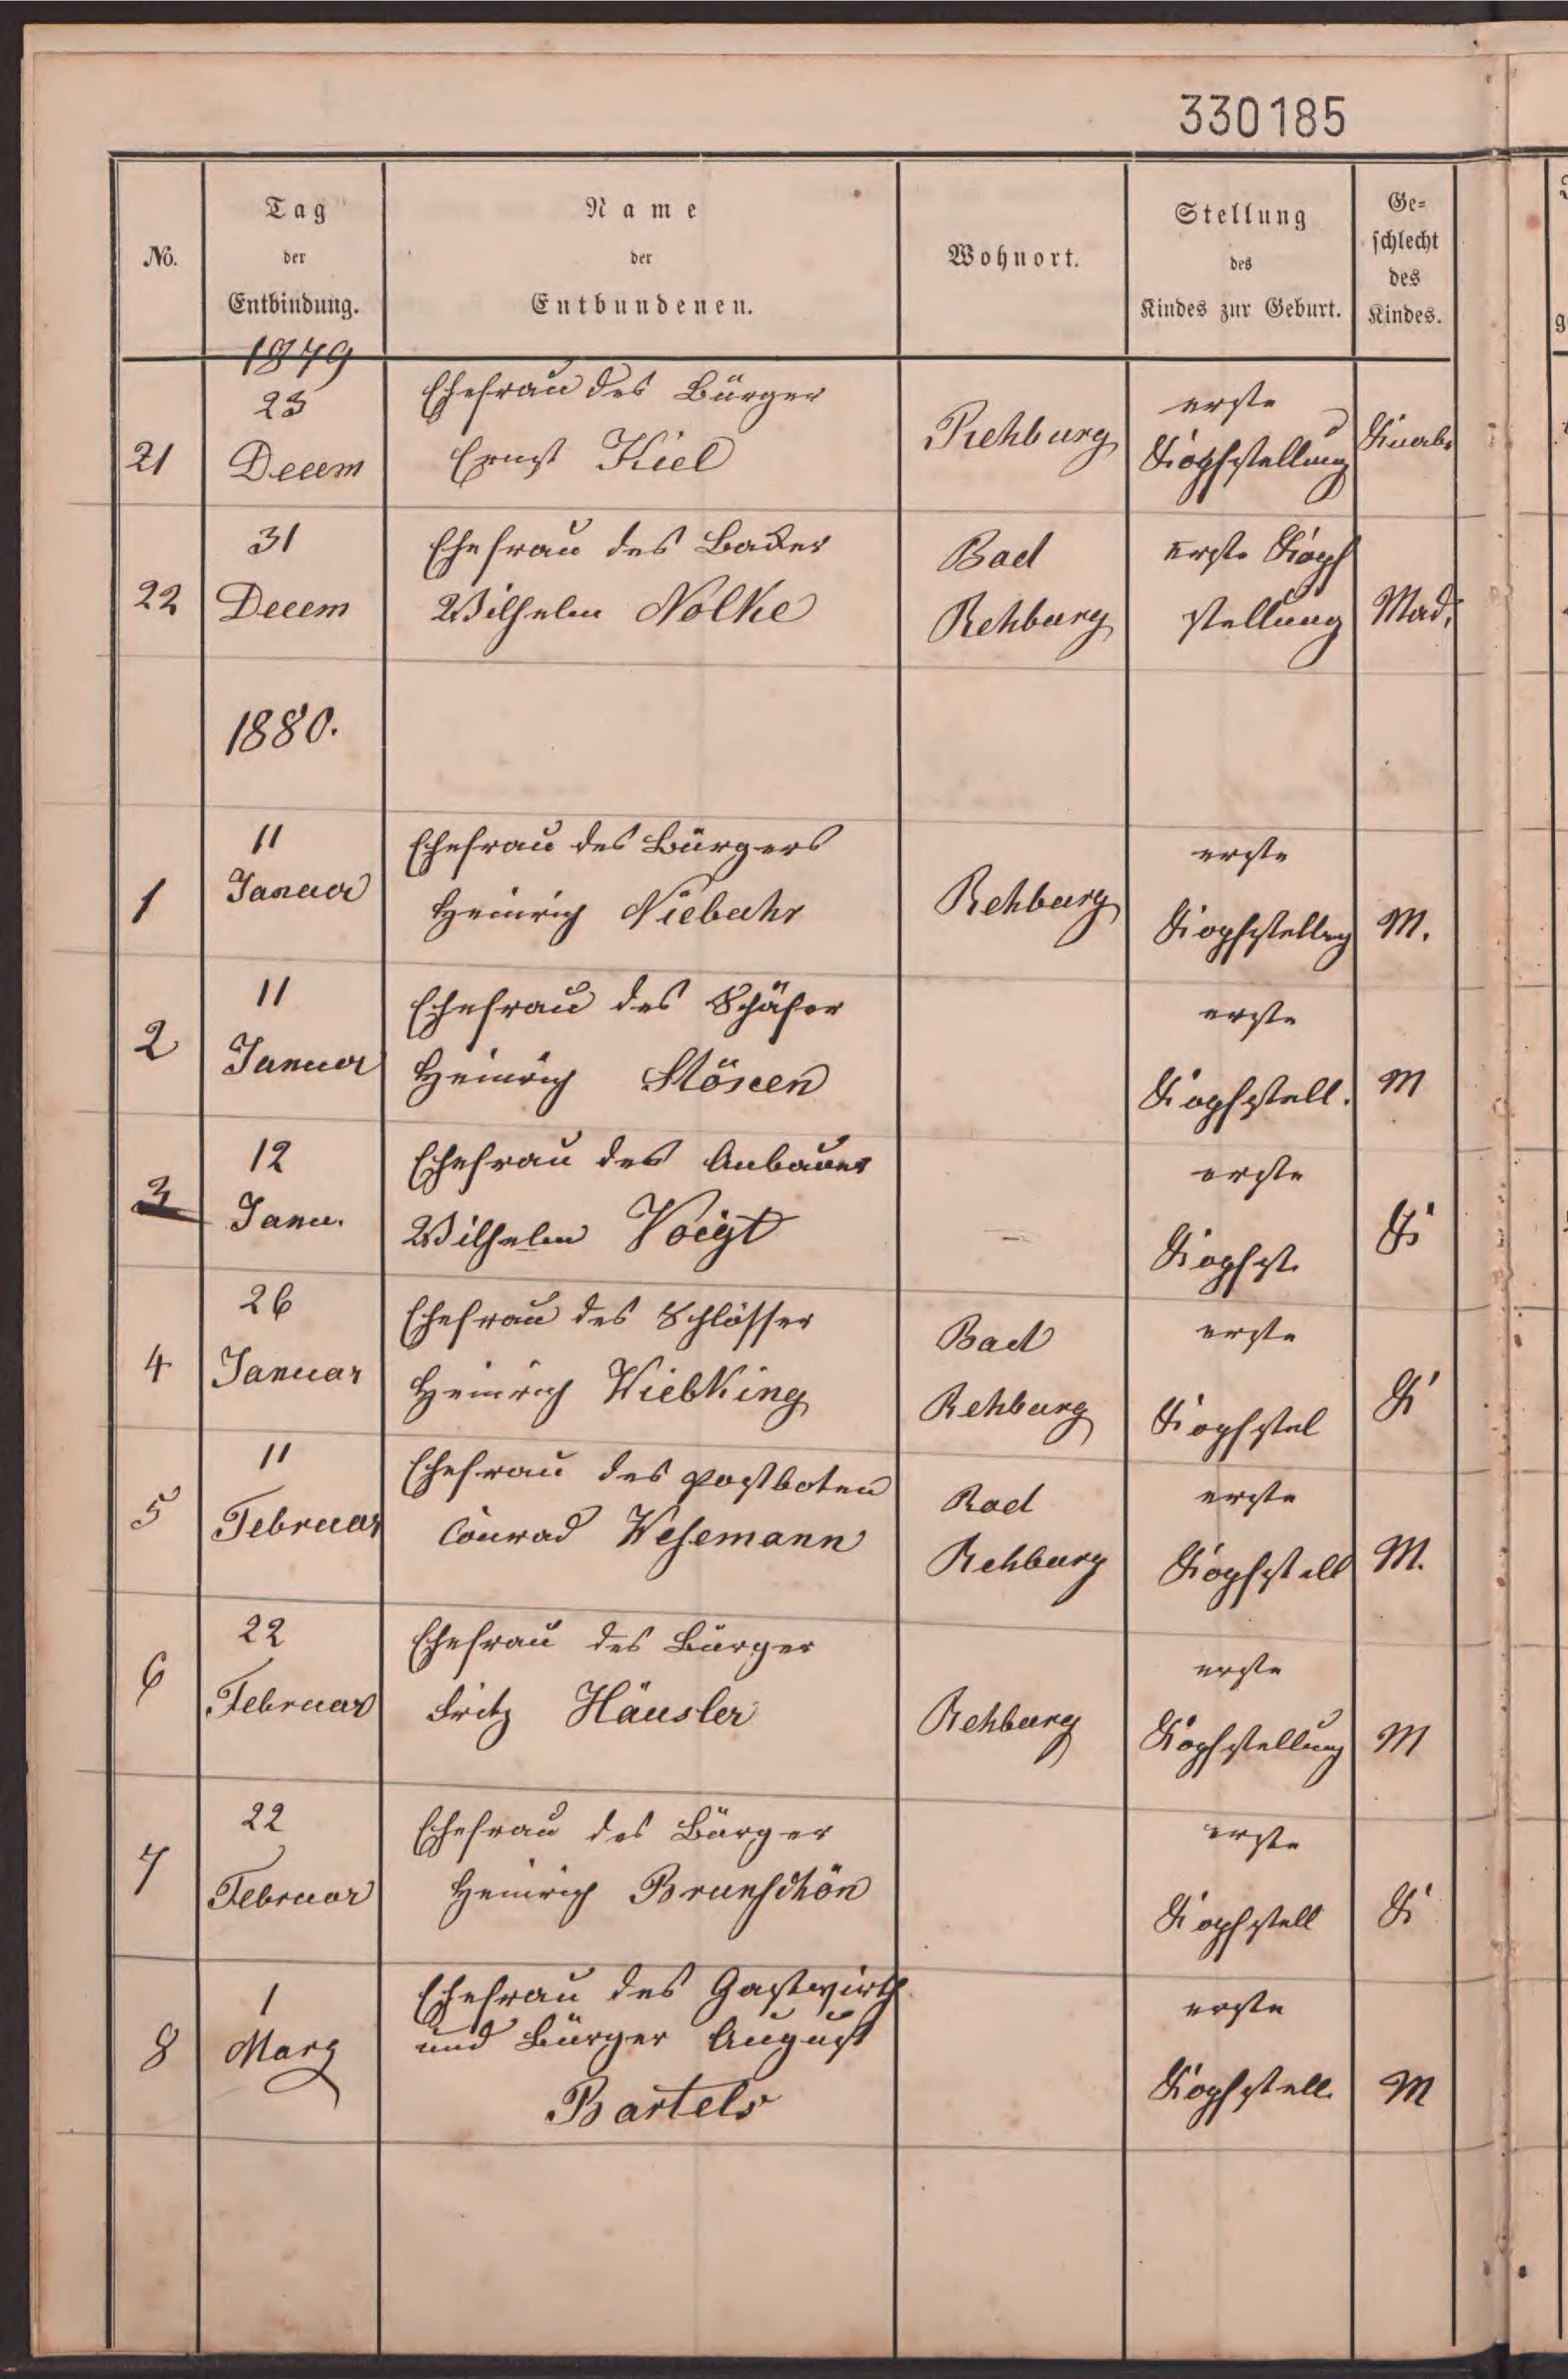 330185
No.
Tag
der
Entbindung.
Name
der
Entbundenen.
Wohnort.
Stellung
des
Kindes zur Geburt.
Ge-
schlecht
des
Kindes.
1879
23
Decem
21
Ehefrau des Bürger
Ernst Kiel
Rehburg
erste
Kopfstellung
Knabe
31
Decem
22
Ehefrau des Backer
Wilhelm Nolke
Bad
Rehburg
erste Kopf
stellung
Mad.
1880.
11
Januar
1
Ehefrau des Bürgers
Heinrich Niebuhr
Rehburg
erste
Kopfstellng
M.
11
Januar
2
Ehefrau des Schäfer
Heinrich
erste
Kopfstell.
M
12
Janu.
3
Ehefrau des Anbauer
Wilhelm Voigt
erste
Kopfst.
K
26
Januar
4
Ehefrau des Schlosser
Heinrich Wiebking
Bad
Rehburg
erste
Kopfstel
K
11
Februar
5
Ehefrau des postboten
Conrad Wesemann
Bad
Rehburg
erste
Kopfstell
M.
22
Februar
6
Ehefrau des Bürger
Fritz Häusler
Rehburg
erste
Kopfstellung
M
22
Februar
7
Ehefrau des Bürger
Heinrich Brunschön
erste
Kopfstell
K
1
Marz
8
Ehefrau des Gastwirth
und Bürger August
Bartels
erste
Kopfstell.
M